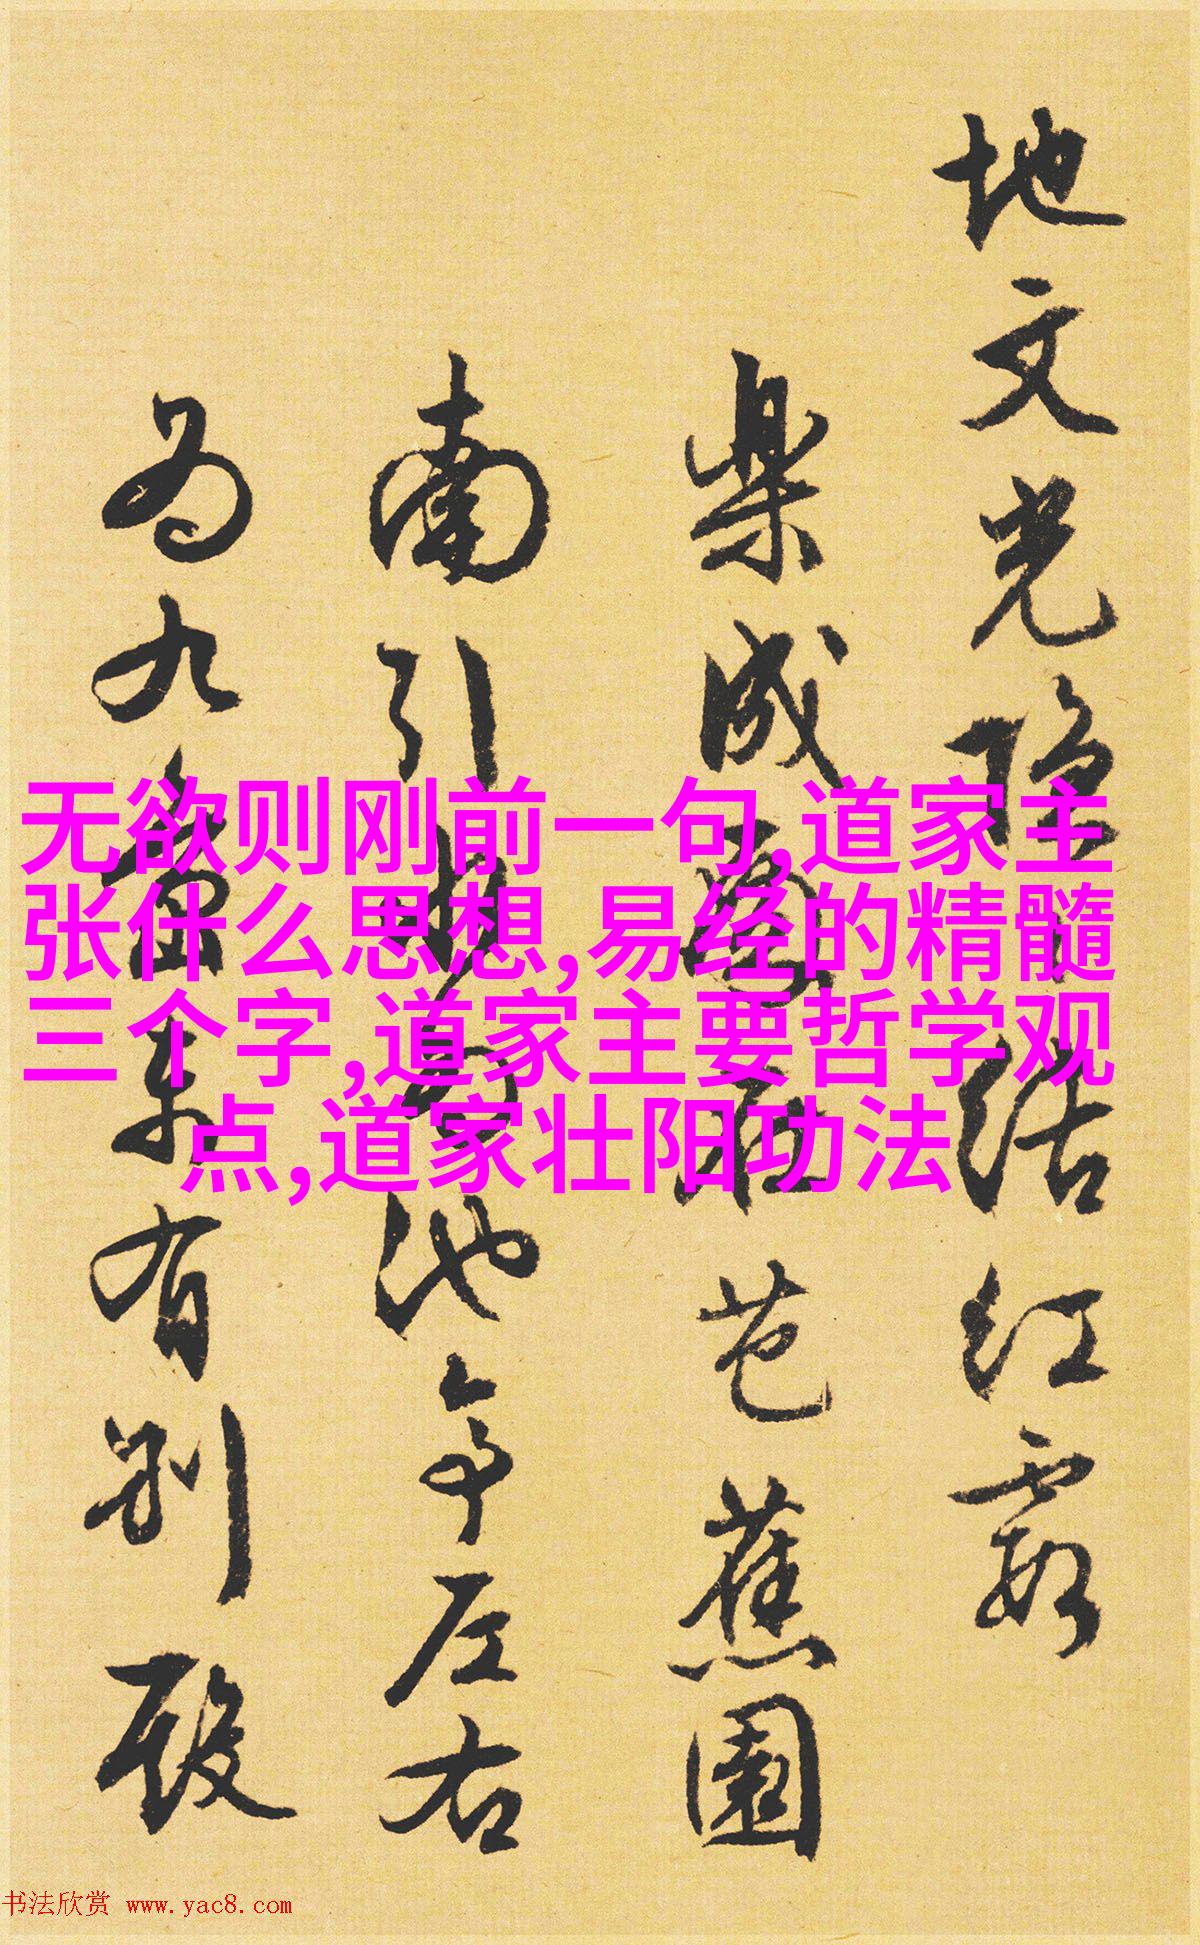 地文光隐
结红霞
樂成
芭蕉園
南引
池亭左右
为九
来有别殿
无欲则刚前一句,道家主
张什么思想,易经的精髓
三个字,道家主要哲学观
点,道家壮阳功法
书法欣赏 www.yac8.com